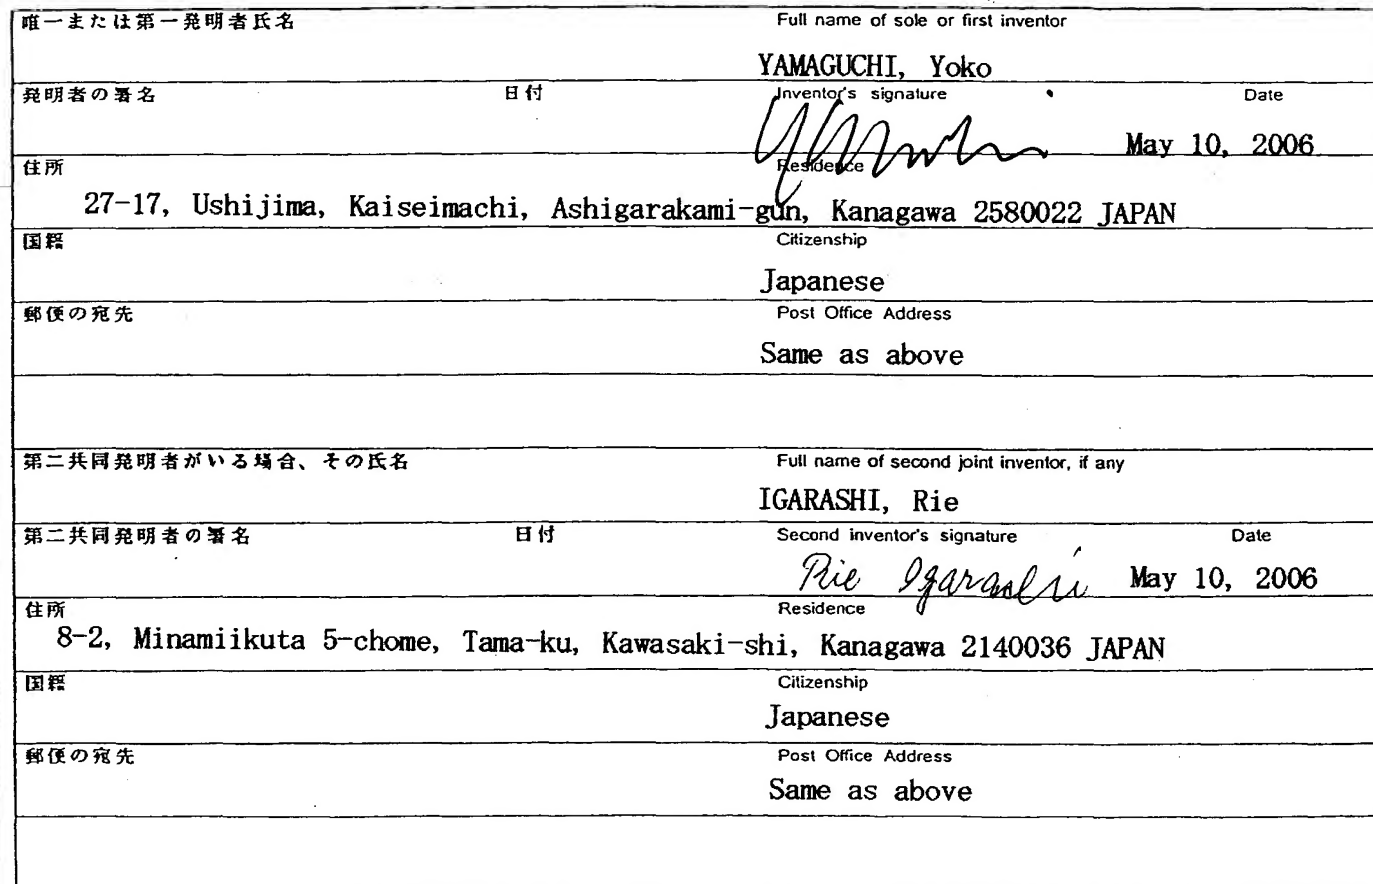 唯一または第一発明者氏名 Full name of sole or first inventor
YAMAGUCHI, Yoko
発明者の署名 日付 Inventor's signature Date
May 10, 2006
住所 Residence
27-17, Ushijima, Kaiseimachi, Ashigarakami-gun, Kanagawa 2580022 JAPAN
国籍 Citizenship
Japanese
郵便の宛先 Post Office Address
Same as above
第二共同発明者がいる場合、その氏名 Full name of second joint inventor, if any
IGARASHI, Rie
第二共同発明者の署名 日付 Second inventor's signature Date
Rie Igarashi May 10, 2006
住所 Residence
8-2, Minamiikuta 5-chome, Tama-ku, Kawasaki-shi, Kanagawa 2140036 JAPAN
国籍 Citizenship
Japanese
郵便の宛先 Post Office Address
Same as above